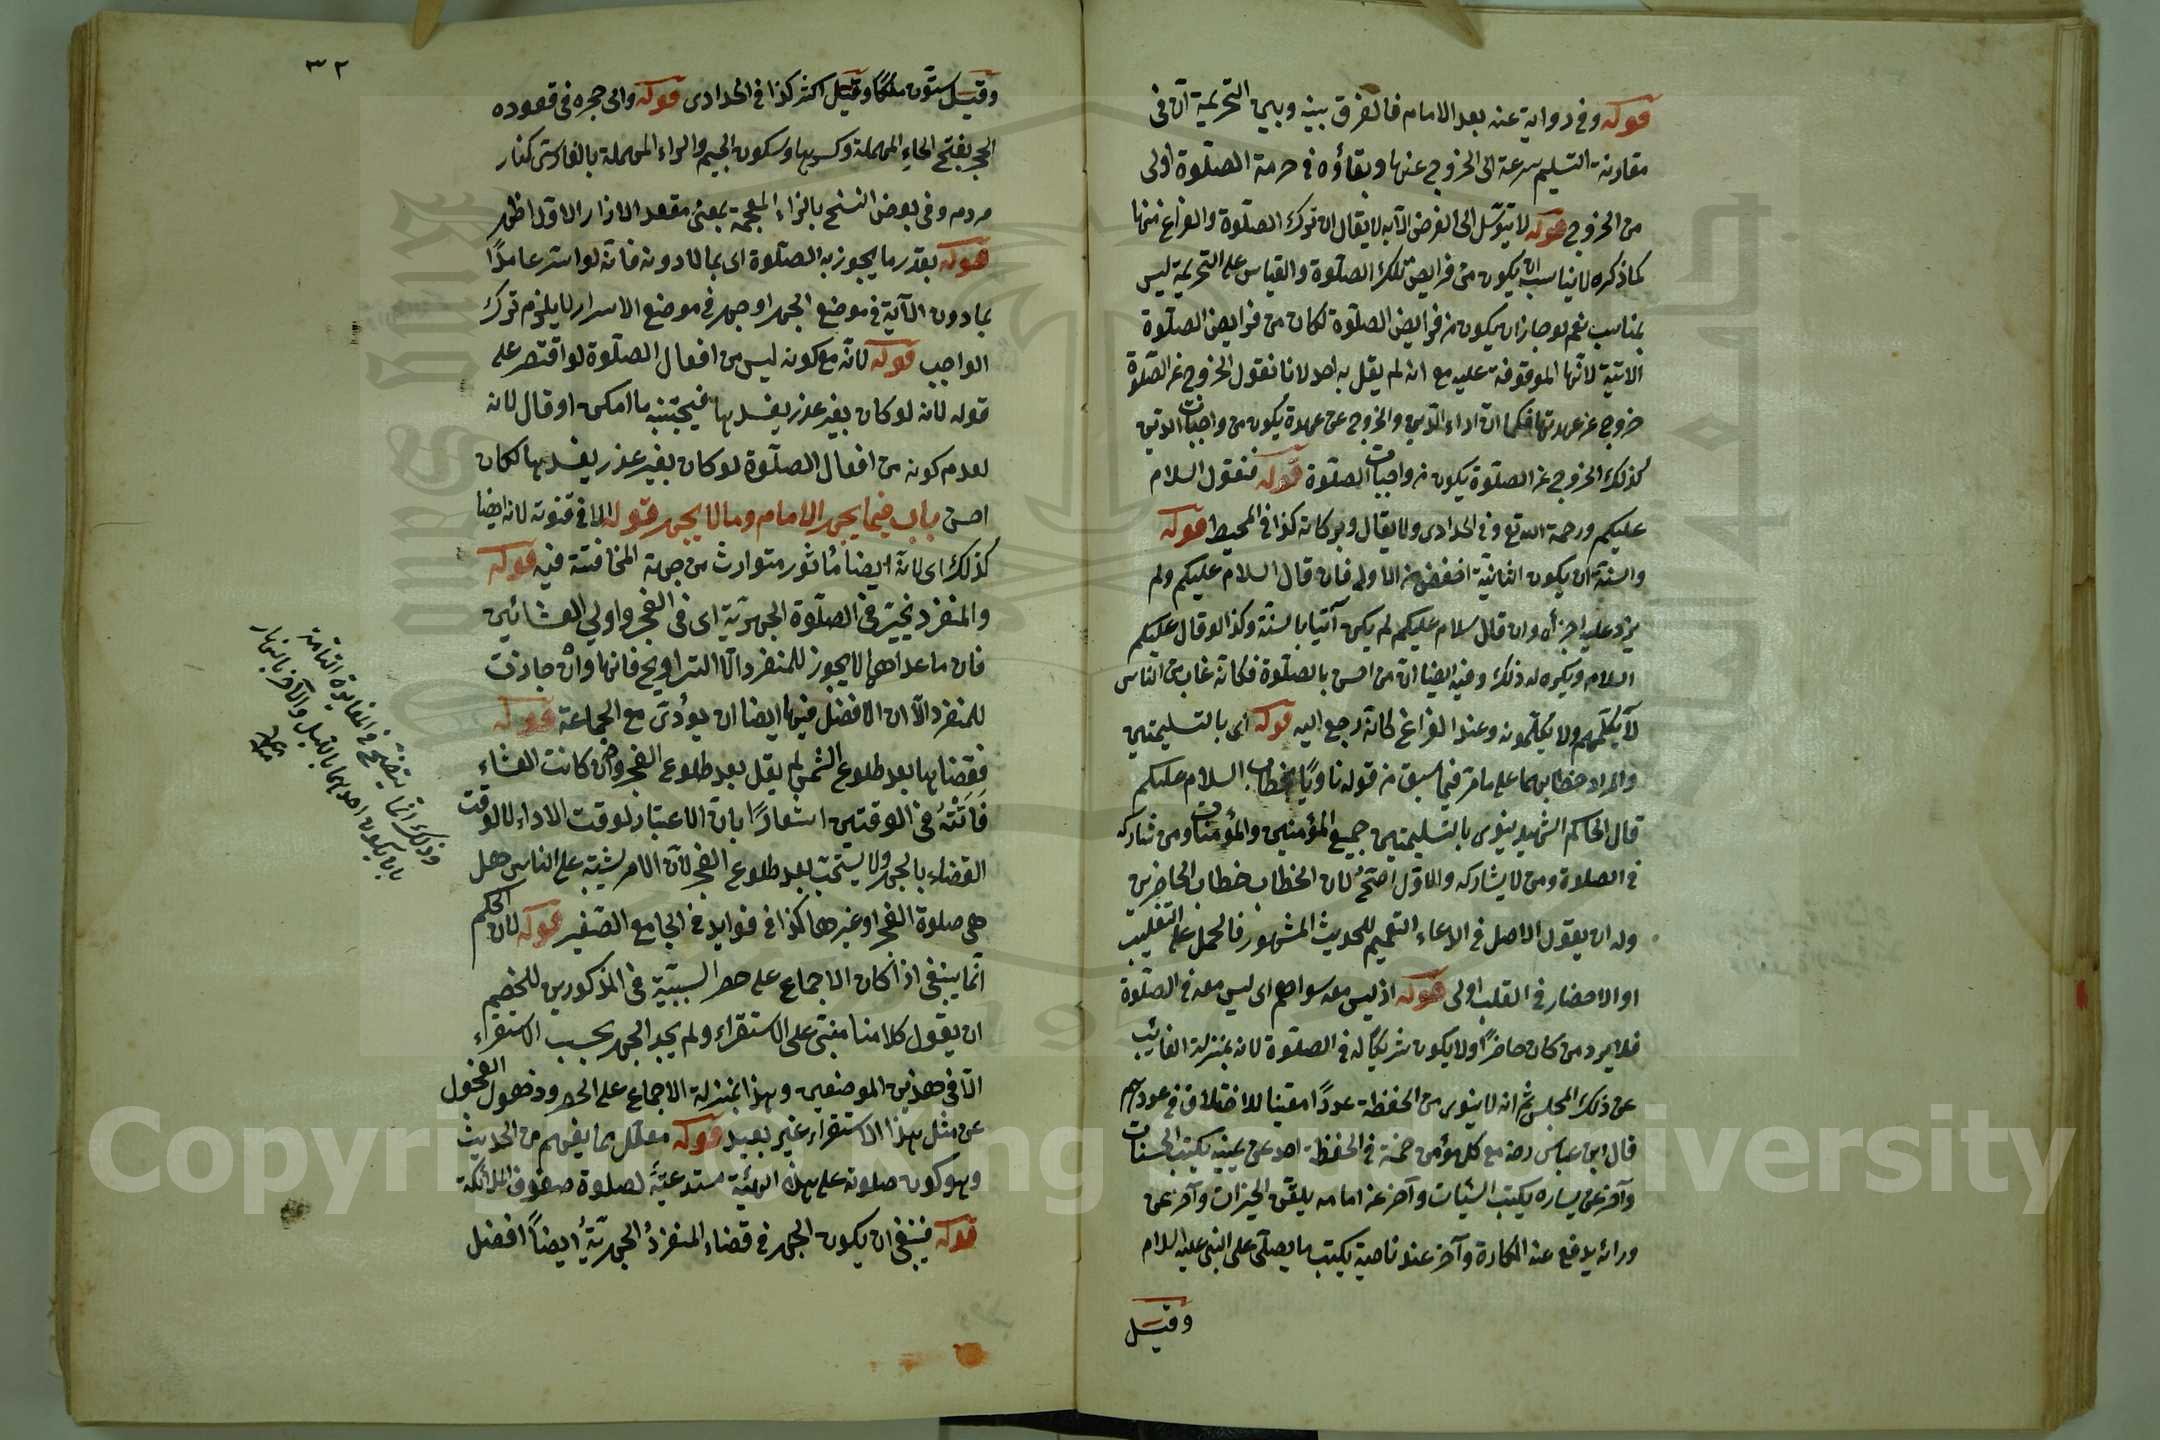 قوله وفي رواية عنه بعد الامام فالفرق بينه وبين التحريمة ان في
مقارنة التسليم سرعة الى الخروج عنها وبقاؤه في حرمة الصلوة اولى
من الخروج قوله لا يتوسل الى الفرض الا به لا يقال ان ترك الصلوة والفراغ منها
كما ذكره لا يناسب ان يكون من فرايض تلك الصلوة والقياس على التحريمة ليس
بمناسب نعم لو جاز ان يكون من فرايض الصلوة لكان من فرايض الصلوة
الاتية لانها الموقوفة عليه مع انه لم يقل به احد لانا نقول الخروج عن الصلوة
خروج عن عهدتها فكما ان اداء الدين والخروج عن عهدة يكون من واجبات الدين
كذلك الخروج عن الصلوة يكون من واجبات الصلوة قوله فنقول السلام
عليكم ورحمة الله تع وفي الحدادى ولا يقال وبركاته كذا في المحيط قوله
والسنة ان يكون الثانية اخفض من الاولى فان قال السلام عليكم ولم
يزد عليه اجزأه وان قال سلام عليكم لم يكن آتيا بالسنة وكذا لو قال عليكم
السلام ويكره له ذلك وفيه ايضا ان من احسن بالصلوة فكانه غاب عن الناس
لا يكلمهم ولا يكلمونه وعند الفراغ كانه رجع اليه قوله اى بالتسليمتين
والمراد خطابهما على ما مر فيما سبق من قوله ناويا بخطاب السلام عليكم
قال الحاكم الشهيد ينوى بالتسليمتين جميع المؤمنين والمؤمنات ومن شاركه
في الصلوة ومن لا يشاركه والاول اصح لان الخطاب خطاب الحاضرين
وله ان يقول الاصل في الدعاء التعميم للحديث المشهور فالحمل على التغليب
او الاحضار في القلب اولى قوله اذ ليس معه سواهم اى ليس معه في الصلوة
فلا يرد من كان حاضرا ولا يكون شريكا له في الصلوة لانه بمنزلة الغائب
عن ذلك المجلس ثم انه لا ينوى من الحفظة عددا معينا للاختلاف في عددهم
قال ابن عباس رضه مع كل مؤمن خمسة في الحفظة احد عن يمينه يكتب الحسنات
وآخر عن يساره يكتب السيئات وآخر عن امامه يلقن الخيرات وآخر عن
ورائه يدفع عنه المكاره وآخر عند ناصية يكتب ما يصلى على النبى عليه السلام
وقيل
٣٢
وقيل ستون ملكا وقيل اكثر كذا في الحدادى قوله والى حجره في قعوده
الحجر بفتح الحاء المهملة وكسرها وسكون الجيم والراء المهملة بالفارسى كنار
مردم وفى بعض النسخ بالزاء المعجمة بمعنى مقعد الازار الاول اظهر
قوله بقدر ما يجوز به الصلوة اى بما لا دونه فانه لو اسر عامدا
بما دون الآية في موضع الجهر او جهر في موضع الاسرار لا يلزم ترك
الواجب قوله لانه مع كونه ليس من افعال الصلوة لو اقتصر على
قوله لانه لو كان بغير عذر يفسدها فيجتنبه ما امكن او قال لانه
لعدم كونه من افعال الصلوة لو كان بغير عذر يفسدها لكان
احسن باب فيما يجهر الامام وما لا يجهر قوله الا في قنوته لانه ايضا
كذلك اى لانه ايضا مأثور متوارث من جهة المخافتة فيه قوله
والمنفرد يخير في الصلوة الجهرية اى في الفجر واولي العشائين
فان ما عداهما لا يجوز للمنفرد الا التراويح فانها وان جازت
للمنفرد الا ان الافضل فيها ايضا ان يؤدى مع الجماعة قوله
فقضاها بعد طلوع الشمس لم يقل بعد طلوع الفجر وان كانت العشاء
فائتة في الوقتين اشعارا بان الاعتبار لوقت الاداء لا لوقت
القضاء بالجهر ولا يستحب بعد طلوع الفجر لان الامر يشتبه على الناس هل
هي صلوة الفجر او غيرها كذا في فوايد في الجامع الصغير قوله لان الحكم
انما ينبغي اذا كان الاجماع على حصر السببية في المذكورين للخصم
ان يقول كلامنا مبنى على الاستقراء ولم يجد الجهر بحسب الاستقراء
الا في هذين الموضعين وهذا بمنزلة الاجماع على الحصر وذهول الفحول
عن مثل هذا الاستقراء غير بعيد قوله معلل بما يفهم من الحديث
وهو كون صلوته على هذه الهيئة مستدعية لصلوة صفوف الملائكة
قوله فينبغي ان يكون الجهر في قضاء المنفرد الجهرية ايضا افضل
وذلك انما يتضح في الفايدة التامة
بان يكون احدهما بالليل والآخر بالنهار
Copyright © King Saud University
1957